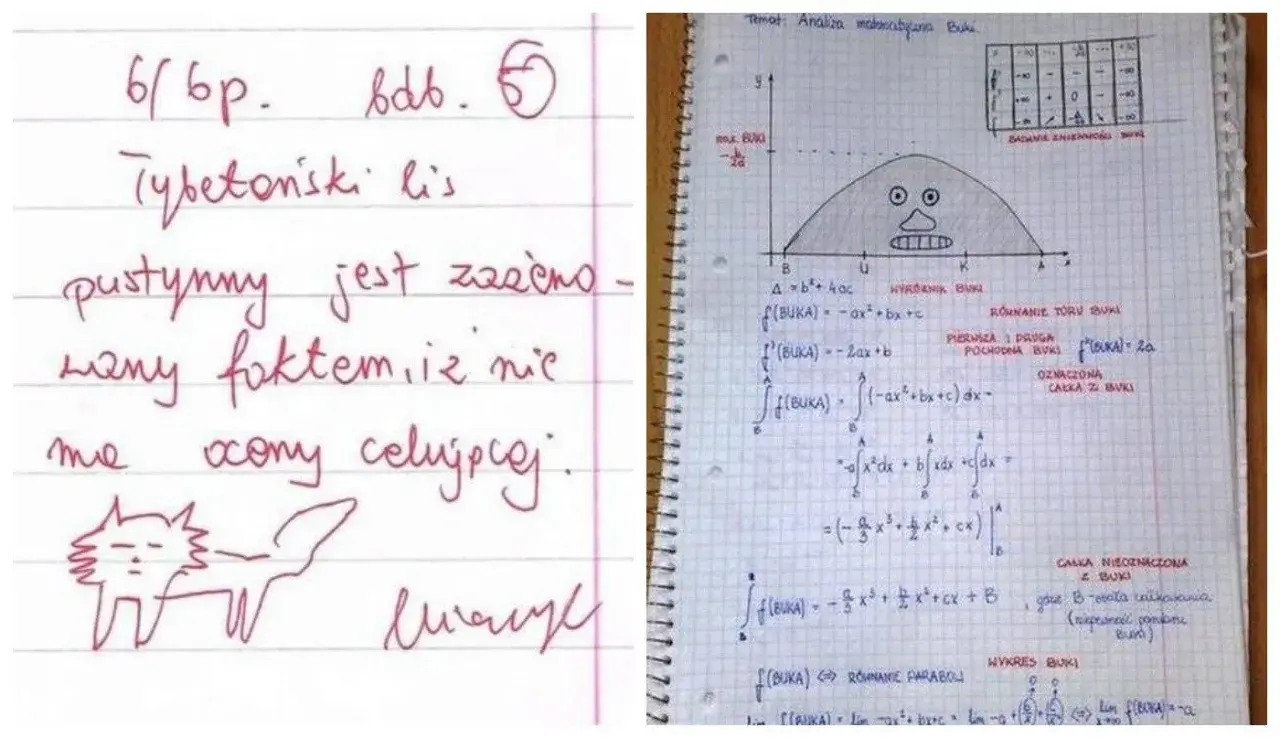 6/6p. bdb. 5
Tybetański lis
pustynny jest zażeno-
wany faktem, iż nie
ma oceny celującej.
Temat: Analiza matematyczna Buki
y
max. BUKI
-b/2a
BADANIE ZMIENNOŚCI BUKI
B U K A x
Δ = b² + 4ac WYRÓŻNIK BUKI
f(BUKA) = -ax² + bx + c RÓWNANIE TORU BUKI
f'(BUKA) = -2ax + b PIERWSZA I DRUGA POCHODNA BUKI f"(BUKA) = 2a
OZNACZONA CAŁKA Z BUKI
∫ᴮᴬ f(BUKA) = ∫ᴮᴬ (-ax² + bx + c) dx =
= -a∫ᴮᴬ x²dx + b∫ᴮᴬ xdx + c∫ᴮᴬ dx =
= (-a/3 x³ + b/2 x² + cx) |ᴮᴬ
CAŁKA NIEOZNACZONA Z BUKI
∫ f(BUKA) = -a/3 x³ + b/2 x² + cx + B , gdzie B - stała całkowania
(niepewność pomiaru
Buki)
WYKRES BUKI
f(BUKA) <=> RÓWNANIE PARABOLI
lim f(BUKA) = lim -ax² + bx + c = lim -a + (b/x) + (c/x²) <=> lim x→∞ f(BUKA) = -a